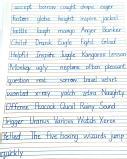 accept borrow caught drapes eager
Fasten globe height inspire jacket
kettle laugh mango Anger Banker
Child Drank Eagle Fight Grind
Helpful Inspire Juggle Kangaroo Lesson
Monkey ugly neptune often peasant
question real sorrow travel
wanted x-ray yacht zebra Naughty
Offense Peacock Quail Rainy Sound
Trigger Uranus Various Watch Xerox
Yelled The five boxing wizards jump
quickly